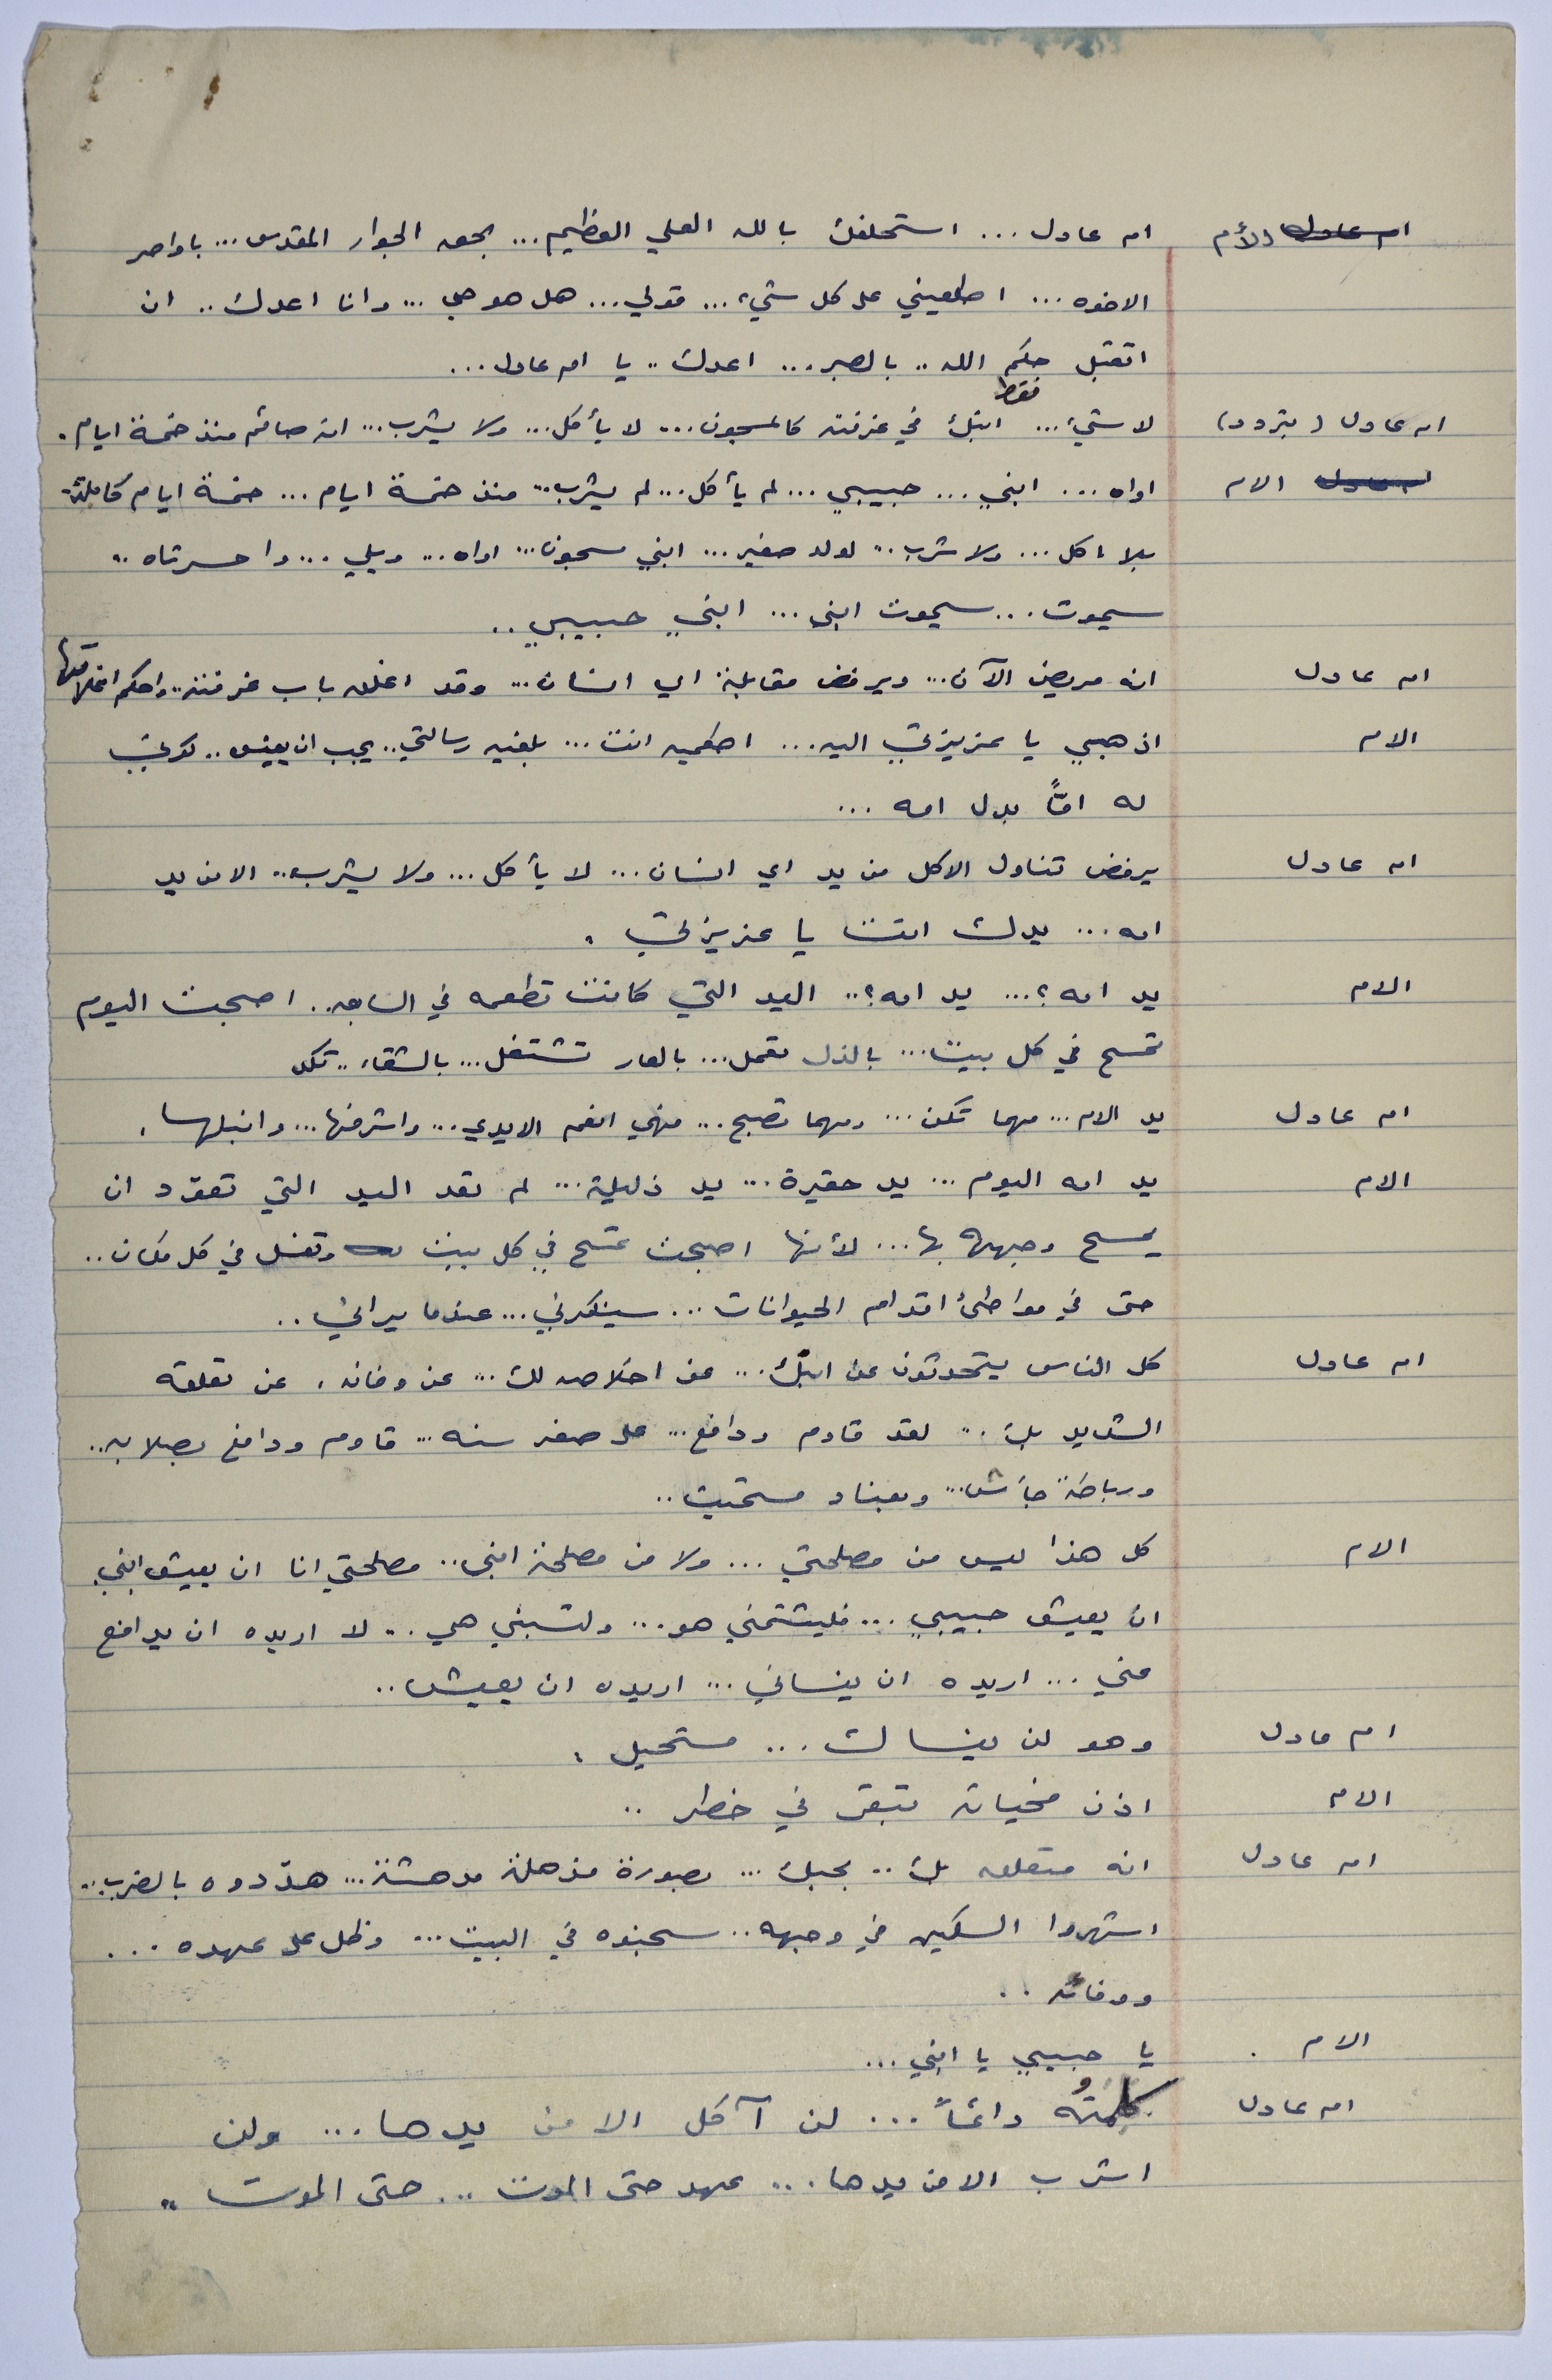 الأم ام عادل ... استحلفك بالله العلي العظيم ... بحق الجوار المقدس ... باواصر
الاخوه ... اطلعيني على كل شيء ... قولي ... هل هو حي ... وانا اعدك .. ان
اتقبل حكم الله .. بالصبر ... اعدك .. يا ام عادل ...
ام عادل (بتردد) لا شيء ... فقط ابنك في غرفته كالمسجون ... لا يأكل ... ولا يشرب ... انه صائم منذ خمسة ايام .
الام اواه ... ابني ... حبيبي ... لم يأكل ... لم يشرب .. منذ خمسة ايام ... خمسة ايام كاملة
بلا اكل ... ولا شرب .. لولد صغير ... ابني مسجون ... اواه ... ويلي ... وا حسرتاه ..
سيموت ... سيموت ابني ... ابني حبيبي ..
ام عادل انه مريض الآن ... ويرفض مقابلة اي انسان ... وقد اغلق باب غرفته .. واحكم اغلاقها
الام اذهبي يا عزيزتي اليه ... اطعميه انت ... بلغيه رسالتي .. يجب ان يعيش .. كوني
له امًّا بدل امه ...
ام عادل يرفض تناول الاكل من يد اي انسان ... لا يأكل ... ولا يشرب .. الا من يد
امه ... يدك انت يا عزيزتي .
الام يد امه ؟ ... يد امه ؟ .. اليد التي كانت تطعمه في السابق .. اصبحت اليوم
تمسح في كل بيت ... بالذل تعمل ... بالعار تشتغل ... بالشقاء ..
ام عادل يد الام ... مهما تكن ... ومهما تصبح ... فهي انعم الايدي ... واشرفها ... وانبلها .
الام يد امه اليوم ... يد حقيرة ... يد ذليلة ... لم تعد اليد التي تعوّد ان
يمسح وجهه بها ... لأنها اصبحت تمسح في كل بيت وتغسل في كل مكان ..
حتى في مواطئ اقدام الحيوانات ... سينكرني ... عندما يراني ..
ام عادل كل الناس يتحدثون عن ابنك ... عن اخلاصه لك ... عن وفائه . عن تعلقه
الشديد بك .. لقد قاوم ودافع ... على صغر سنه ... قاوم ودافع بصلابه ..
ورباطة جأش ... وبعناد مستميت ..
الام كل هذا ليس من مصلحتي ... ولا من مصلحة ابني .. مصلحتي انا ان يعيش ابني
ان يعيش حبيبي ... فليشتمني هو ... ولتسبني هي .. لا اريده ان يدافع
عني ... اريده ان ينساني ... اريده ان يعيش ..
ام عادل وهو لن ينساك ... مستحيل .
الام اذن فحياته تبقى في خطر ..
ام عادل انه متعلق بك .. بحبك ... بصورة مذهلة مدهشة ... هدّدوه بالضرب ..
اشهروا السكين في وجهه .. سجنوه في البيت ... وظل على عهده ...
ووفائه ..
الام . يا حبيبي يا ابني ...
ام عادل كلمتُه دائماً ... لن آكل الا من يدها ... ولن
اشرب الا من يدها ... عهد حتى الموت ... حتى الموت ..